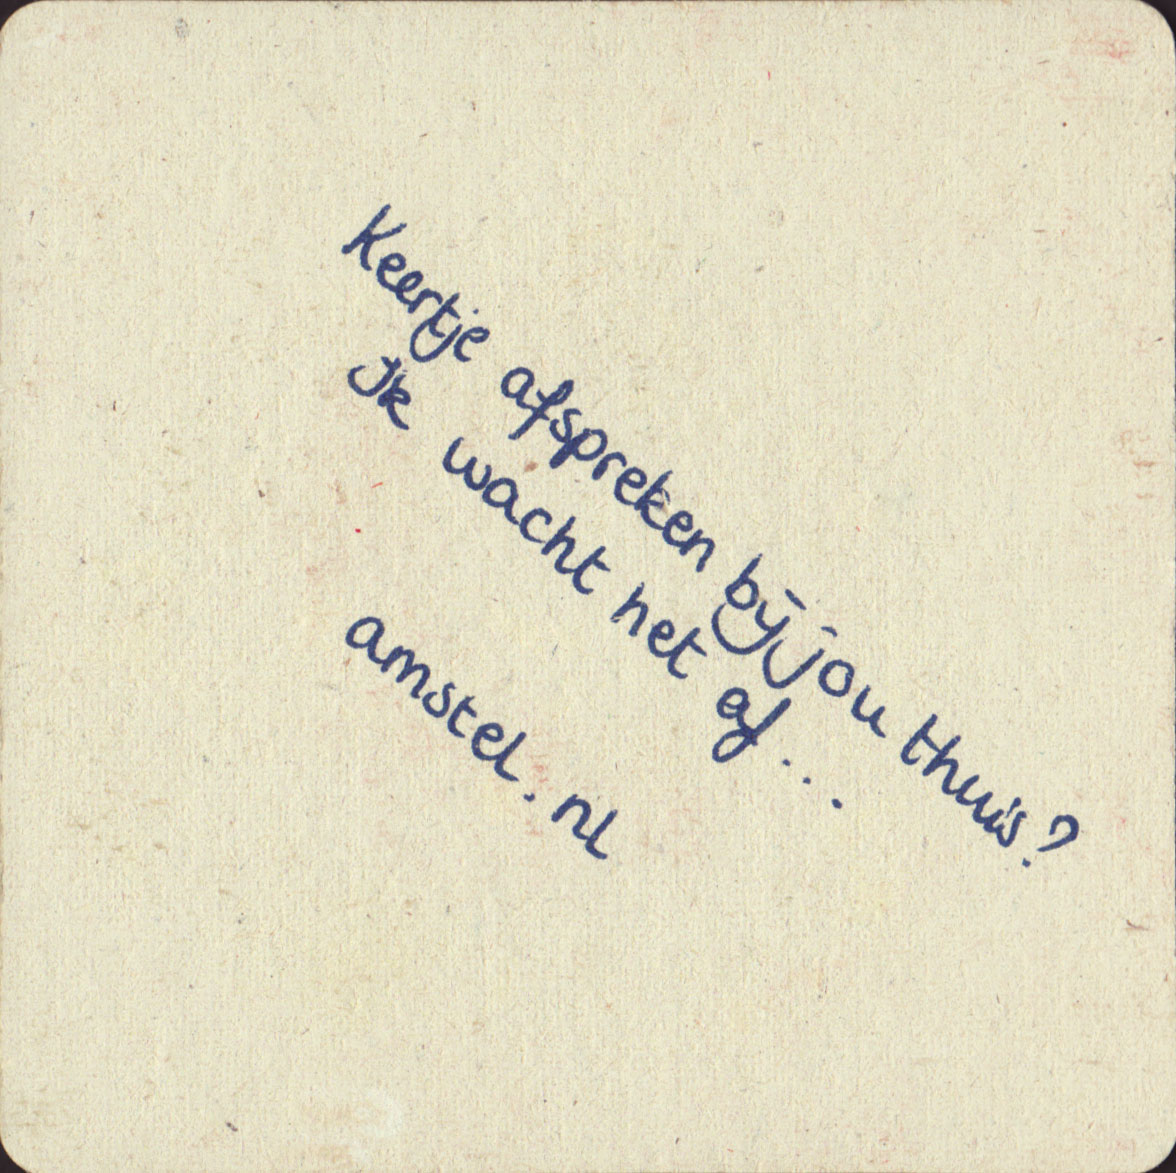 Keertje afspreken bij jou thuis?
Ik wacht het af...
amstel.nl